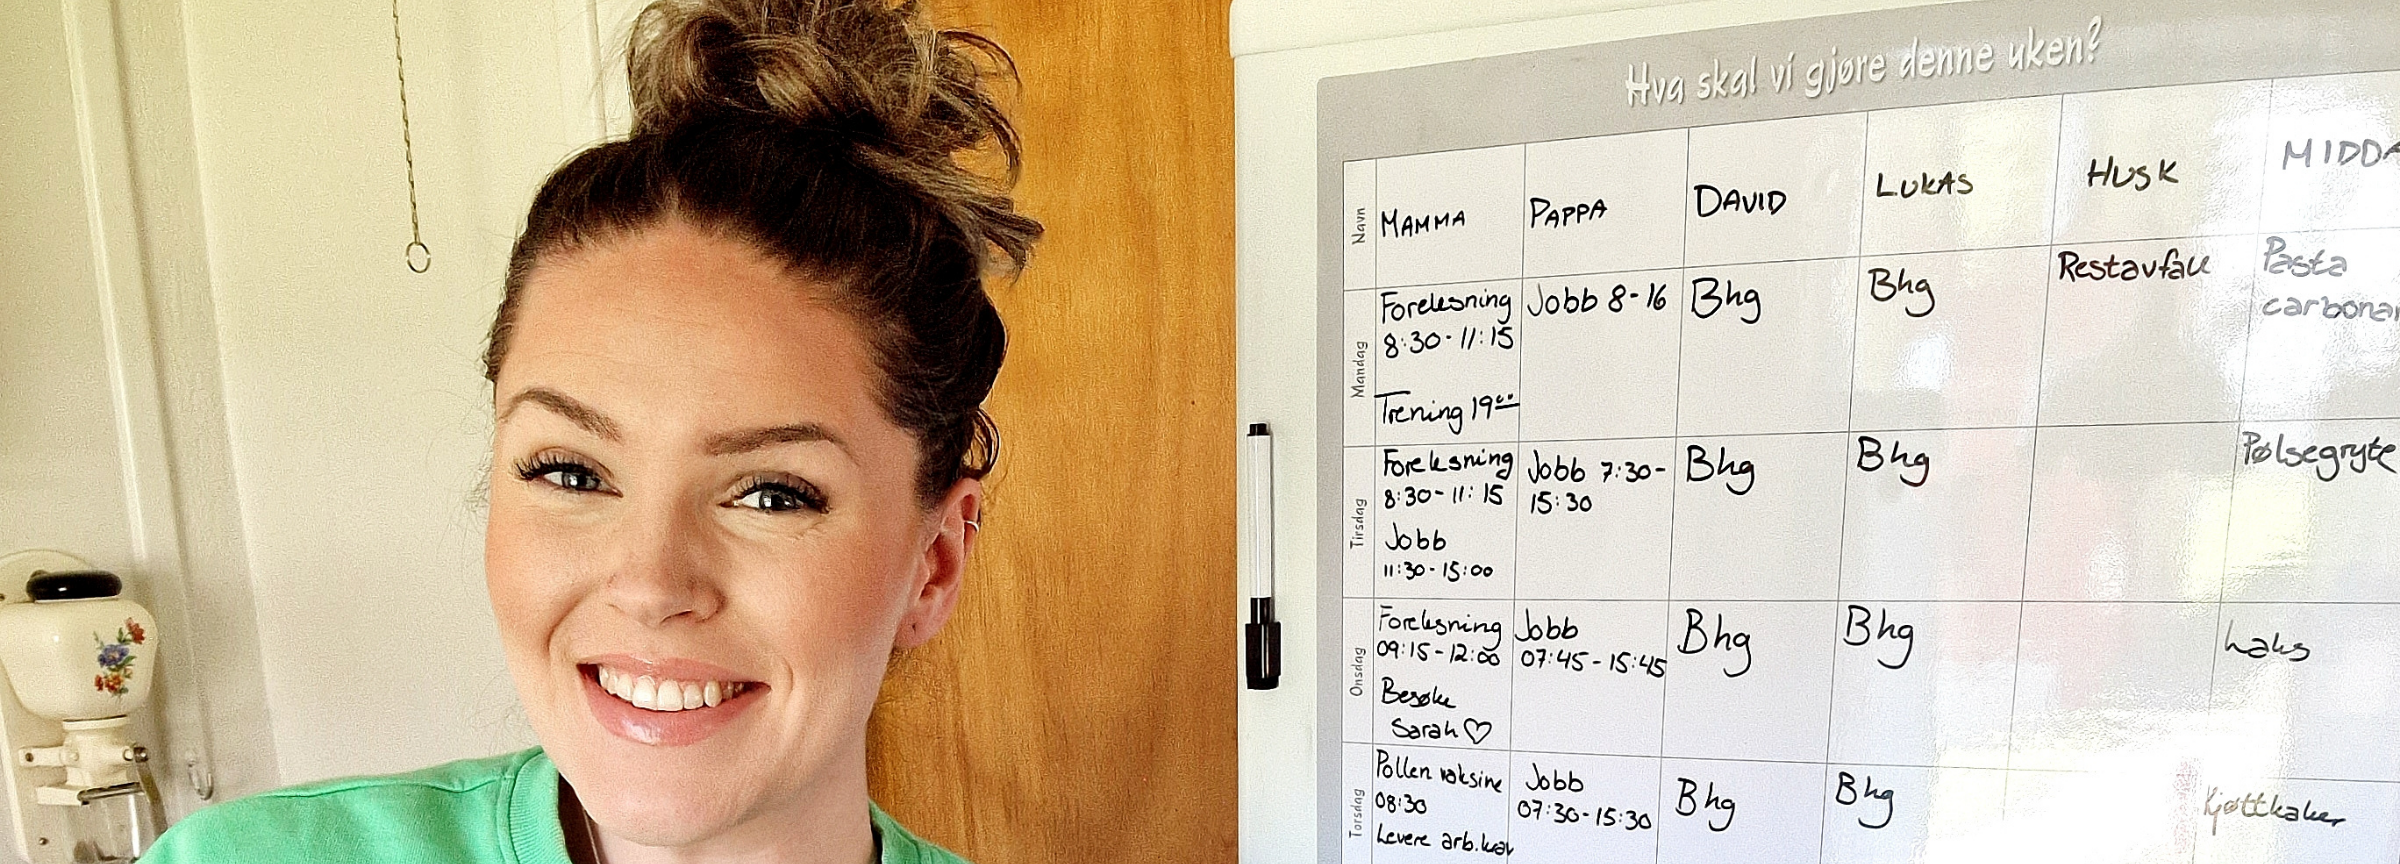 Hva skal vi gjøre denne uken?
Navn MAMMA PAPPA DAVID LUKAS HUSK MIDDA
Mandag
Forelesning
8:30-11:15
Trening 19⁰⁰
Jobb 8-16
Bhg
Bhg
Restavfall
Pasta
carbonar
Tirsdag
Forelesning
8:30-11:15
Jobb
11:30-15:00
Jobb 7:30-
15:30
Bhg
Bhg
Pølsegryte
Onsdag
Forelesning
09:15-12:00
Besøke
Sarah ♡
Jobb
07:45-15:45
Bhg
Bhg
Laks
Torsdag
Pollen vaksine
08:30
Levere arb.krav
Jobb
07:30-15:30
Bhg
Bhg
Kjøttkaker